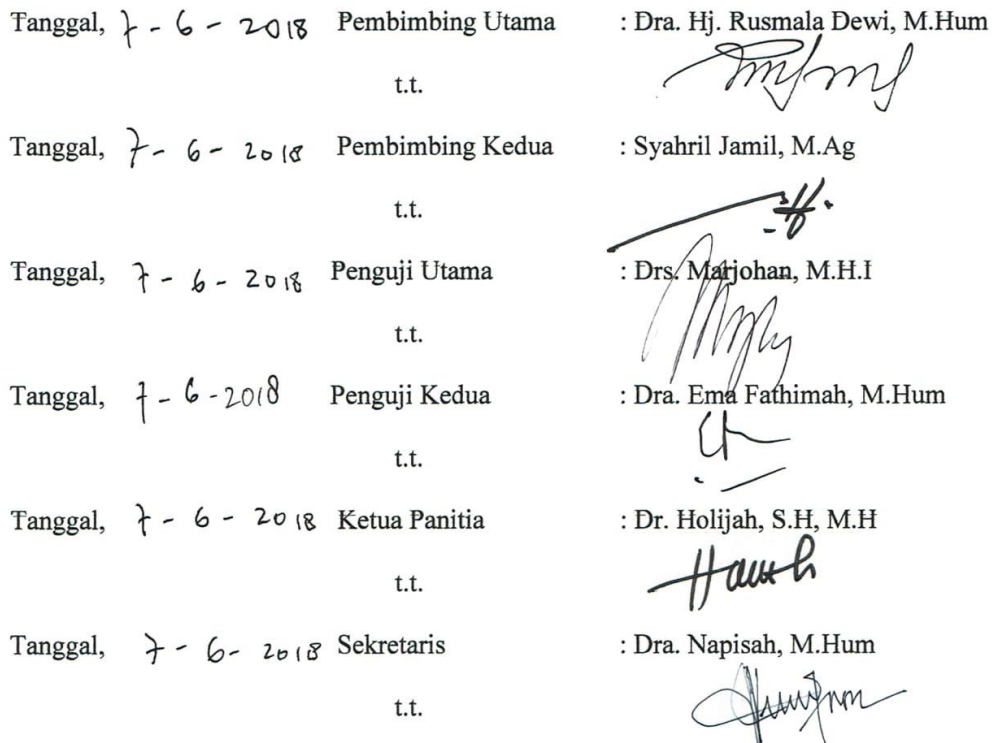 Tanggal, 7 - 6 - 2018 Pembimbing Utama : Dra. Hj. Rusmala Dewi, M.Hum
t.t.
Tanggal, 7 - 6 - 2018 Pembimbing Kedua : Syahril Jamil, M.Ag
t.t.
Tanggal, 7 - 6 - 2018 Penguji Utama : Drs. Marjohan, M.H.I
t.t.
Tanggal, 7 - 6 - 2018 Penguji Kedua : Dra. Ema Fathimah, M.Hum
t.t.
Tanggal, 7 - 6 - 2018 Ketua Panitia : Dr. Holijah, S.H, M.H
t.t.
Tanggal, 7 - 6 - 2018 Sekretaris : Dra. Napisah, M.Hum
t.t.